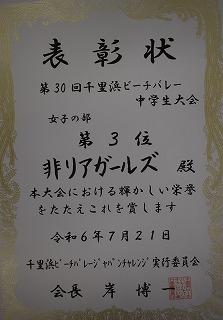 表彰状
第30回千里浜ビーチバレー
中学生大会
女子の部
第3位
非リアガールズ 殿
本大会における輝かしい栄誉
をたたえこれを賞します
令和6年7月21日
千里浜ビーチバレージャパンチャレンジ実行委員会
会長 岸 博一